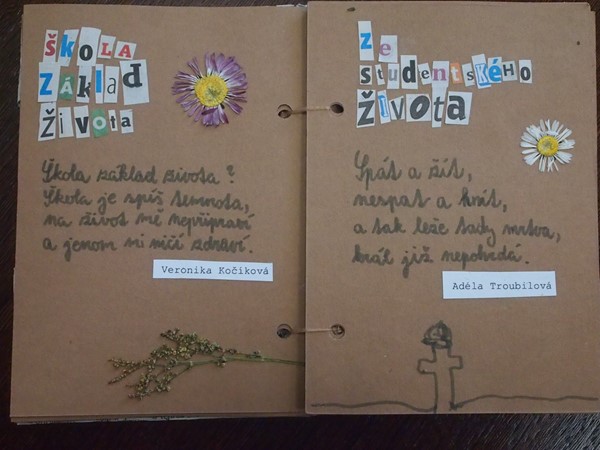 ŠKOLA
ZÁKLAD
Života
Škola základ života?
Škola je spíš temnota,
na život mě nepřipraví
a jenom mi ničí zdraví.
Veronika Kočiková
ze
studentského
života
Spát a žít,
nespat a hnít,
a tak leže tady mrtva,
král již nepohrdá.
Adéla Troubilová